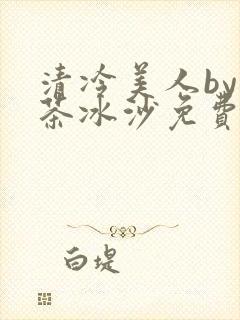 清冷美人by
茶冰沙免费
白堤